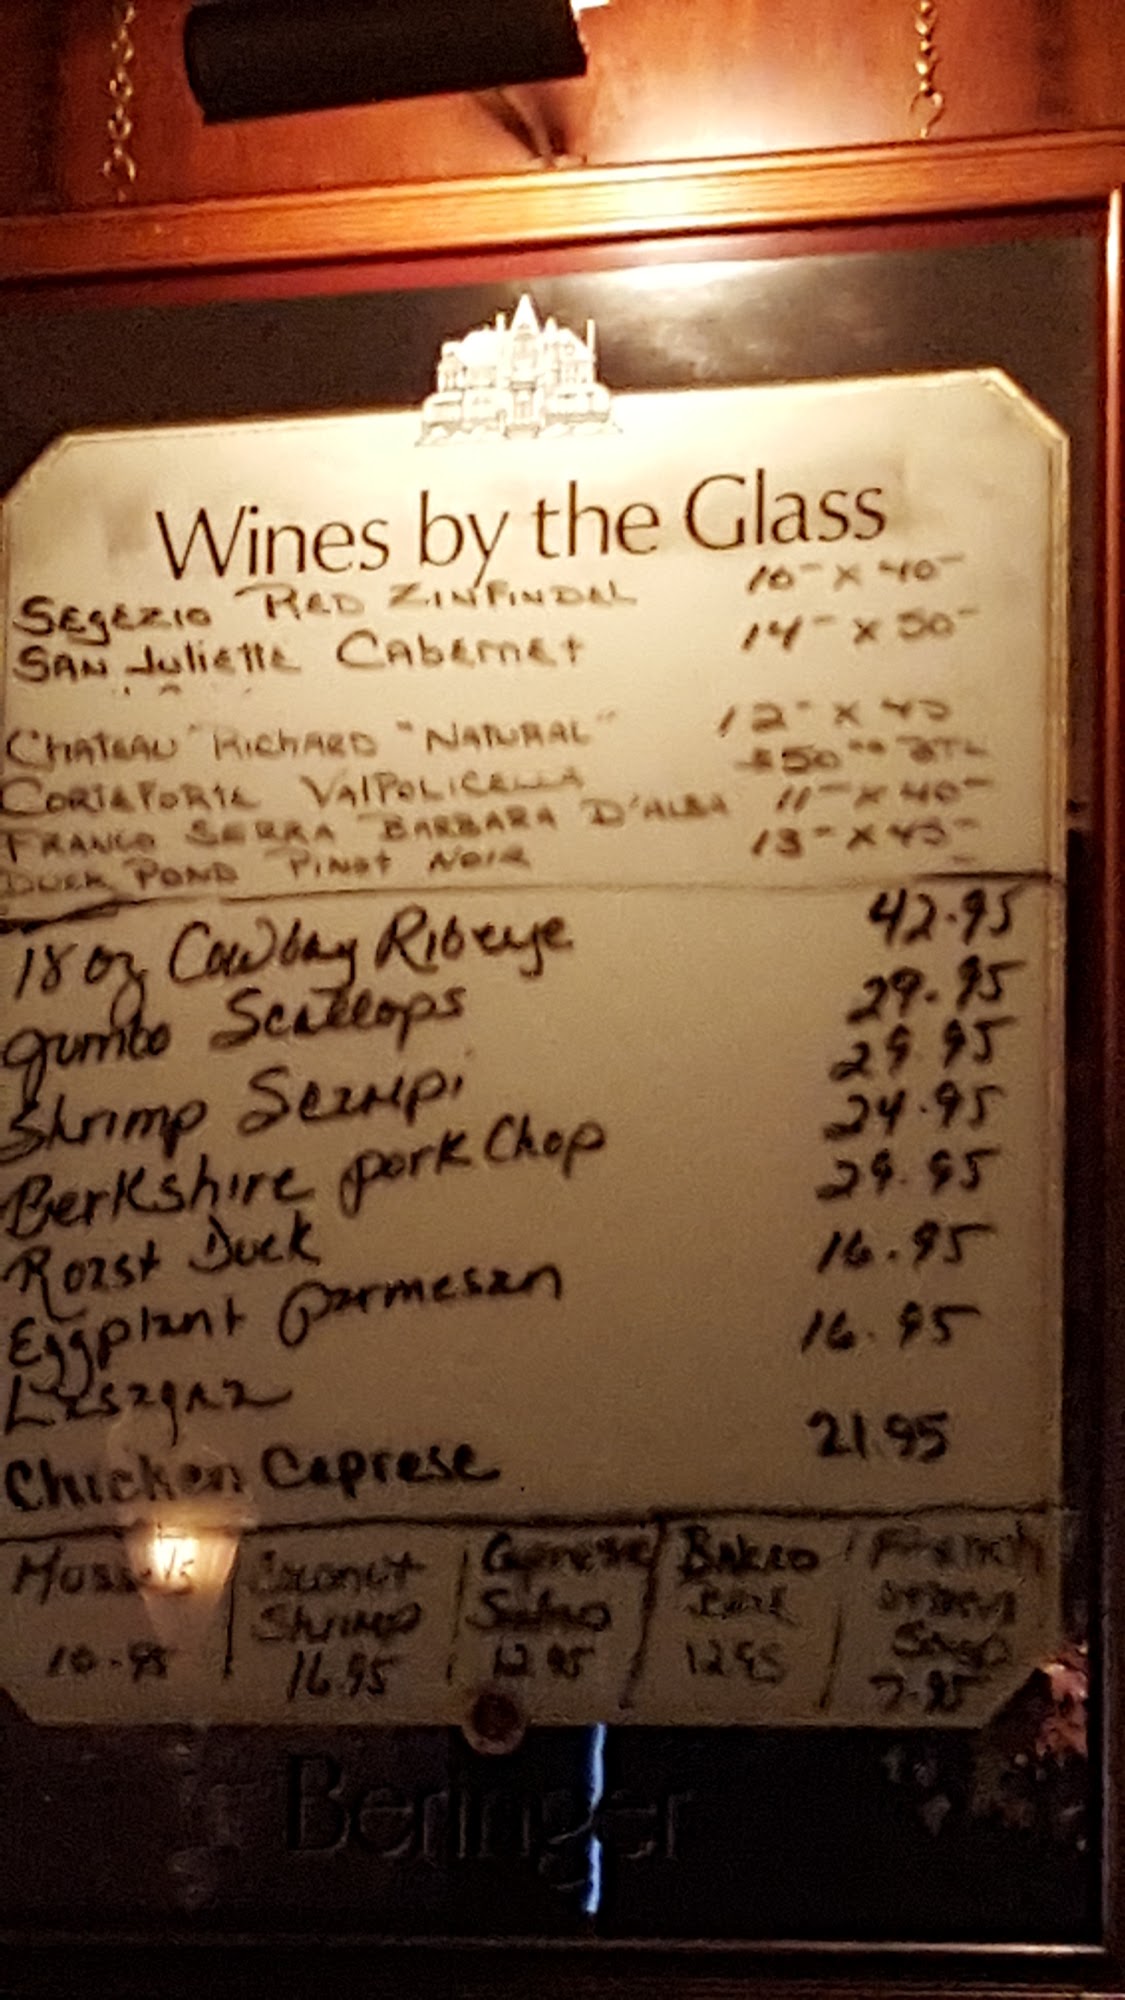 Wines by the Glass
SEgEZIO RED ZINFINDEL 10- X 40-
SAN JuliETTE CAbERNEt 14- X 50-
CHATEAU "RICHARD "NATURAL" 12- X 45
CORTEFORTE VAlPOLICELLA $50.00 BTL
FRANCO SERRA BARBARA D'ALBA 11- X 40-
DUCK POND PINOT NOIR 13- X 45-
18 oz Cowboy Ribeye 42.95
gumbo Scallops 29.95
Shrimp Scampi 29.95
Berkshire pork Chop 24.95
Roast Duck 29.95
Eggplant parmesan 16.95
Lasagna 16.95
Chicken Caprese 21.95
Mussels 10.95
Coconut Shrimp 16.95
Caprese Salad 12.95
Baked Brie 12.95
French Onion Soup 7.95
Beringer